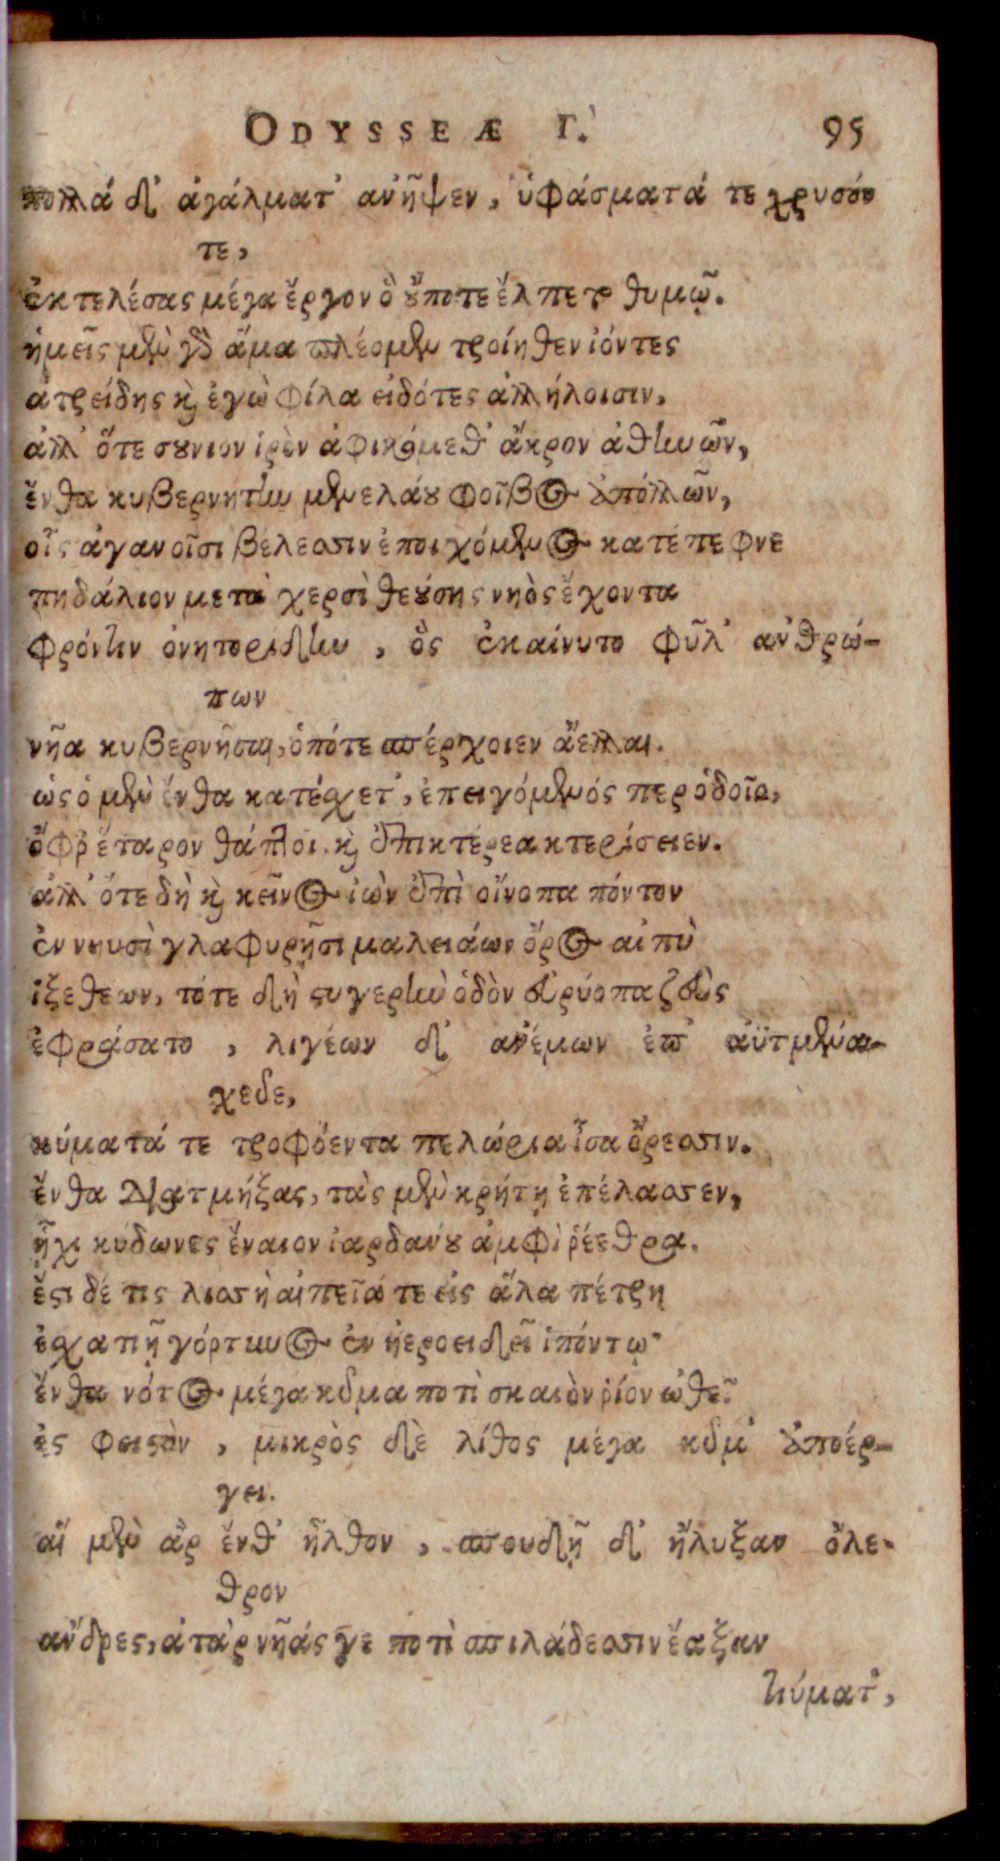 ODYSSEÆ Γ. 95
πολλά δ' ἀγάλματ' ανῆψεν, ὑφάσματά τε χρυσόν
τε,
ἐκτελέσας μέγα ἔργον ὃ οὔποτε ἔλπετο θυμῷ.
ἡμεῖς μὲν γὸ ἅμα πλέομεν τροίηθεν ἰόντες
ἀτρείδης καὶ ἐγὼ φίλα εἰδότες ἀλλήλοισιν,
ἀλλ' ὅτε σουνιον ἱρὸν ἀφικόμεθ' ἄκρον ἀθηνῶν,
ἔνθα κυβερνητὴν μενελάου φοῖβος ἀπόλλων,
οἷς ἀγανοῖσι βέλεσσιν ἐποιχόμενος κατέπεφνε
πηδάλιον μετὰ χερσὶ θεούσης νηὸς ἔχοντα
φρόντιν ὀνητορίδην, ὃς ἐκαίνυτο φῦλ' ανθρώ-
πων
νῆα κυβερνῆσαι, ὁπότε σπέρχοιεν ἄελλαι.
ὡς ὁ μὲν ἔνθα κατέσχετ', ἐπειγόμενός περ ὁδοῖο,
ὄφρ' ἕταρον θάπτοι καὶ ἐπὶ κτέρεα κτερίσειεν.
ἀλλ' ὅτε δὴ καὶ κεῖνος ἰὼν ἐπὶ οἴνοπα πόντον
ἐν νηυσὶ γλαφυρῇσι μαλειάων ὄρος αἰπὺ
ἷξε θεων, τότε δὴ στυγερὴν ὁδὸν εὐρύοπα ζεὺς
ἐφράσατο, λιγέων δ' ανέμων ἐπ' αϋτμένα
χεδε,
κύματά τε τροφόεντα πελώρια ἶσα ὄρεσσιν.
ἔνθα διατμήξας, τὰς μὲν κρήτῃ ἐπέλασσεν,
ᾗχι κύδωνες ἔναιον ἰαρδανου ἀμφὶ ῥέεθρα.
ἔστι δέ τις λισσὴ αἰπεῖά τε εἰς ἅλα πέτρη
ἐσχατιῇ γόρτυνος ἐν ἠεροειδέϊ πόντῳ·
ἔνθα νότος μέγα κῦμα ποτὶ σκαιὸν ῥίον ὠθεῖ
ἐς φαιστὸν, μικρὸς δὲ λίθος μέγα κῦμ' ἀποέρ-
γει.
αἵ μὲν ἂρ ἔνθ' ἦλθον, σπουδῇ δ' ἤλυξαν ὄλε-
θρον
ανδρες, ἀτὰρ νῆάς γε ποτὶ σπιλάδεσσιν ἔαξαν
κύματ',